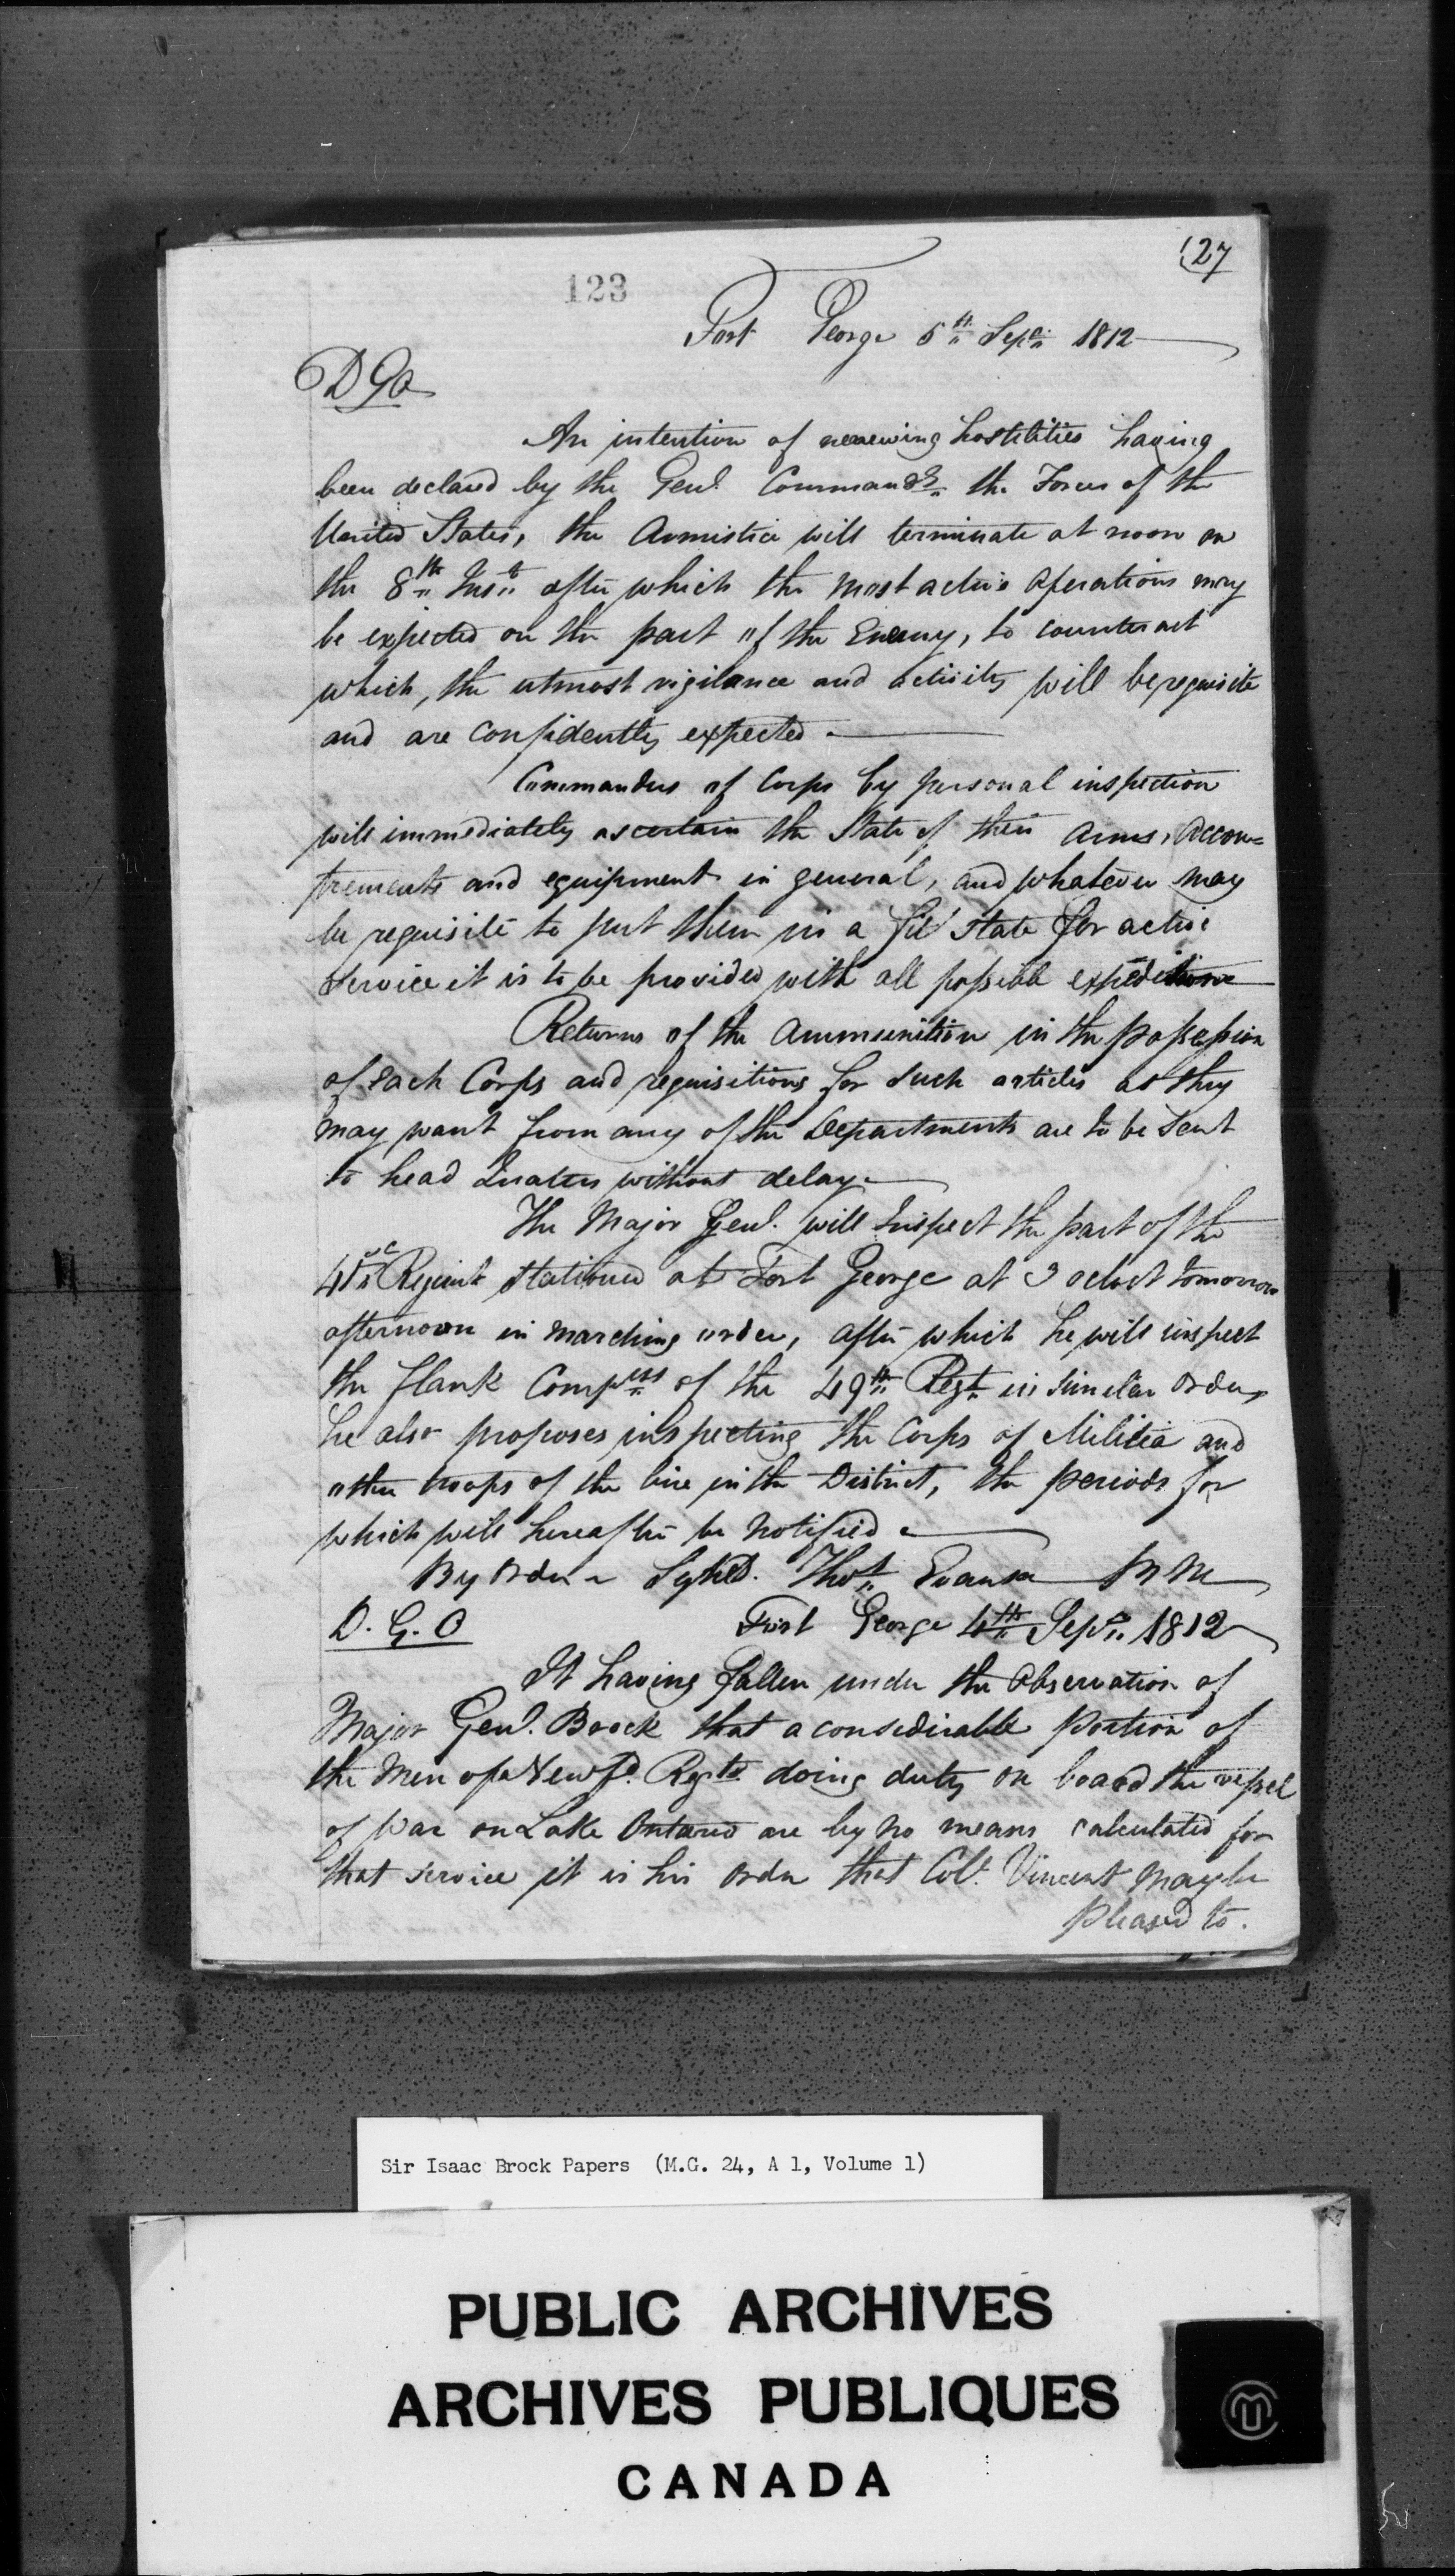 127
123
Fort George 5th Sepr 1812
D G O
An intention of renewing hostilities having
been declared by the Genl. Commandg the Forces of the
United States, the Armistice will terminate at noon on
the 8th Inst after which the most active operations may
be expected on the part of the Enemy, to counteract
which, the utmost vigilance and activity will be requisite
and are confidently expected.
Commanders of Corps by personal inspection
will immediately ascertain the State of their Arms, Accou=
trements and equipment in general, and whatever may
be requisite to put them in a fit State for active
Service it is to be provided with all possible expedition
Returns of the Ammunition in the possession
of each Corps and requisitions for such articles as they
may want from any of the Departments are to be sent
to head Quaters without delay.
The Major Genl. will Inspect the part of the
41st Regimt stationed at Fort George at 3 oclock tomorrow
afternoon in marching order, after which he will inspect
the flank Compys of the 49th Regt in similar order,
he also proposes inspecting the Corps of Militia and
other troops of the line in the District, the periods for
which will hereafter be notified.
By Order Signed. Thos Evans B M
D. G. O Fort George 4th Sepr. 1812
It having fallen under the Observation of
Major Genl. Brock that a considerable portion of
the Men of Newfd. Regt doing duty on board the vessel
of War on Lake Ontario are by no means calculated for
that service it is his order that Coll. Vincent may be
pleased to.
Sir Isaac Brock Papers (M.G. 24, A 1, Volume 1)
PUBLIC ARCHIVES
ARCHIVES PUBLIQUES
CANADA